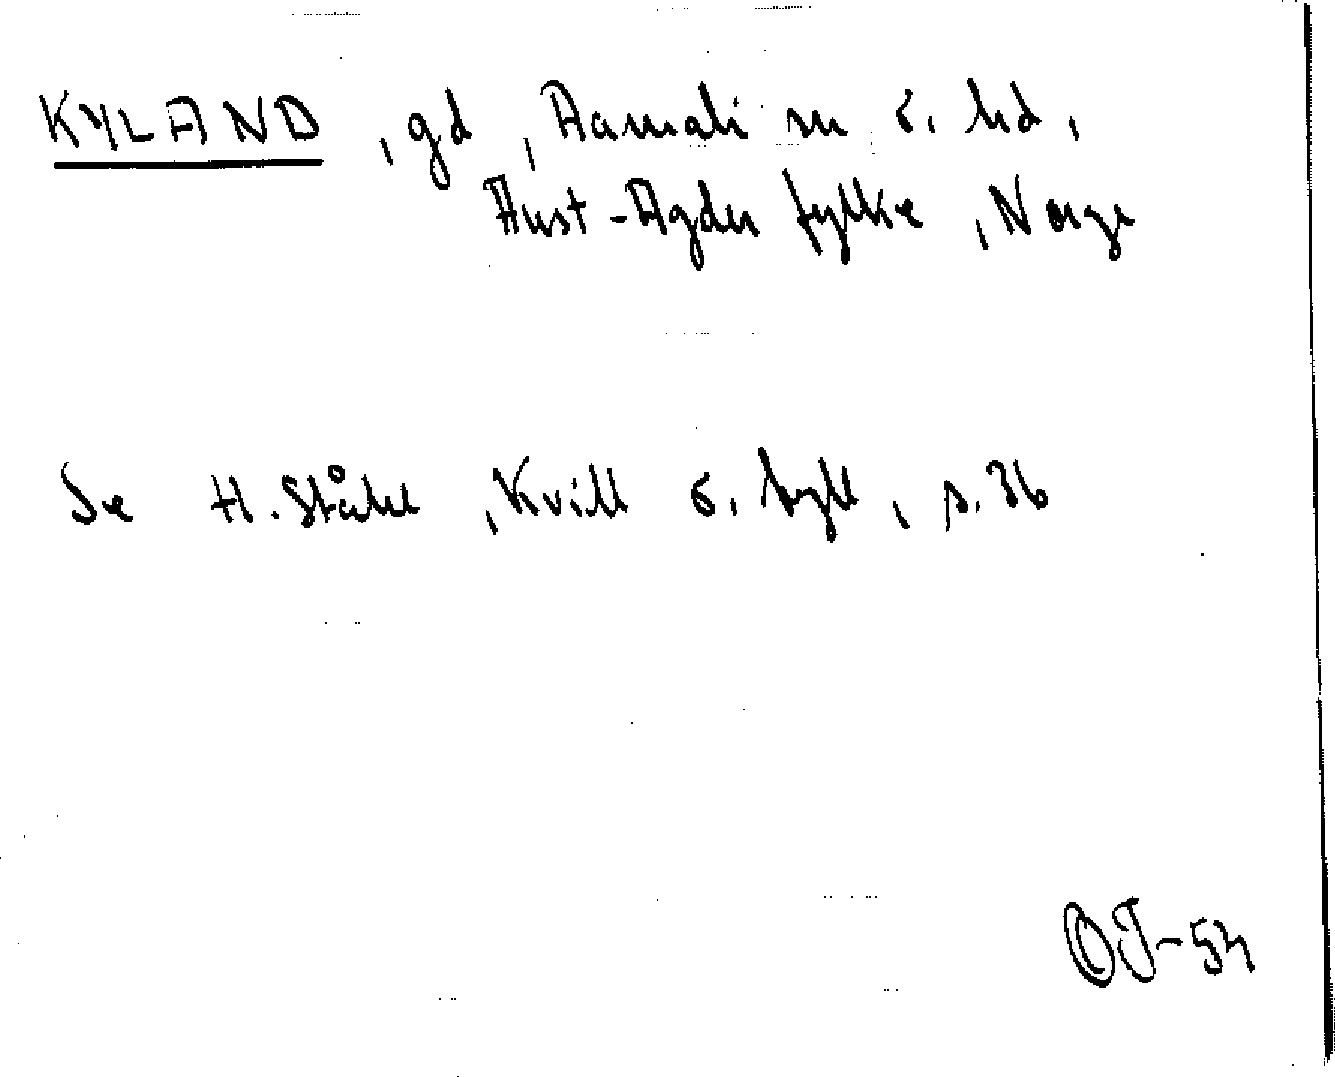 KYLAND, gd, Aamali sn o. hd,
Aust-Agder fylke, Norge
Se H. Ståhl, Kvill o. tyll, s. 36
OJ-54